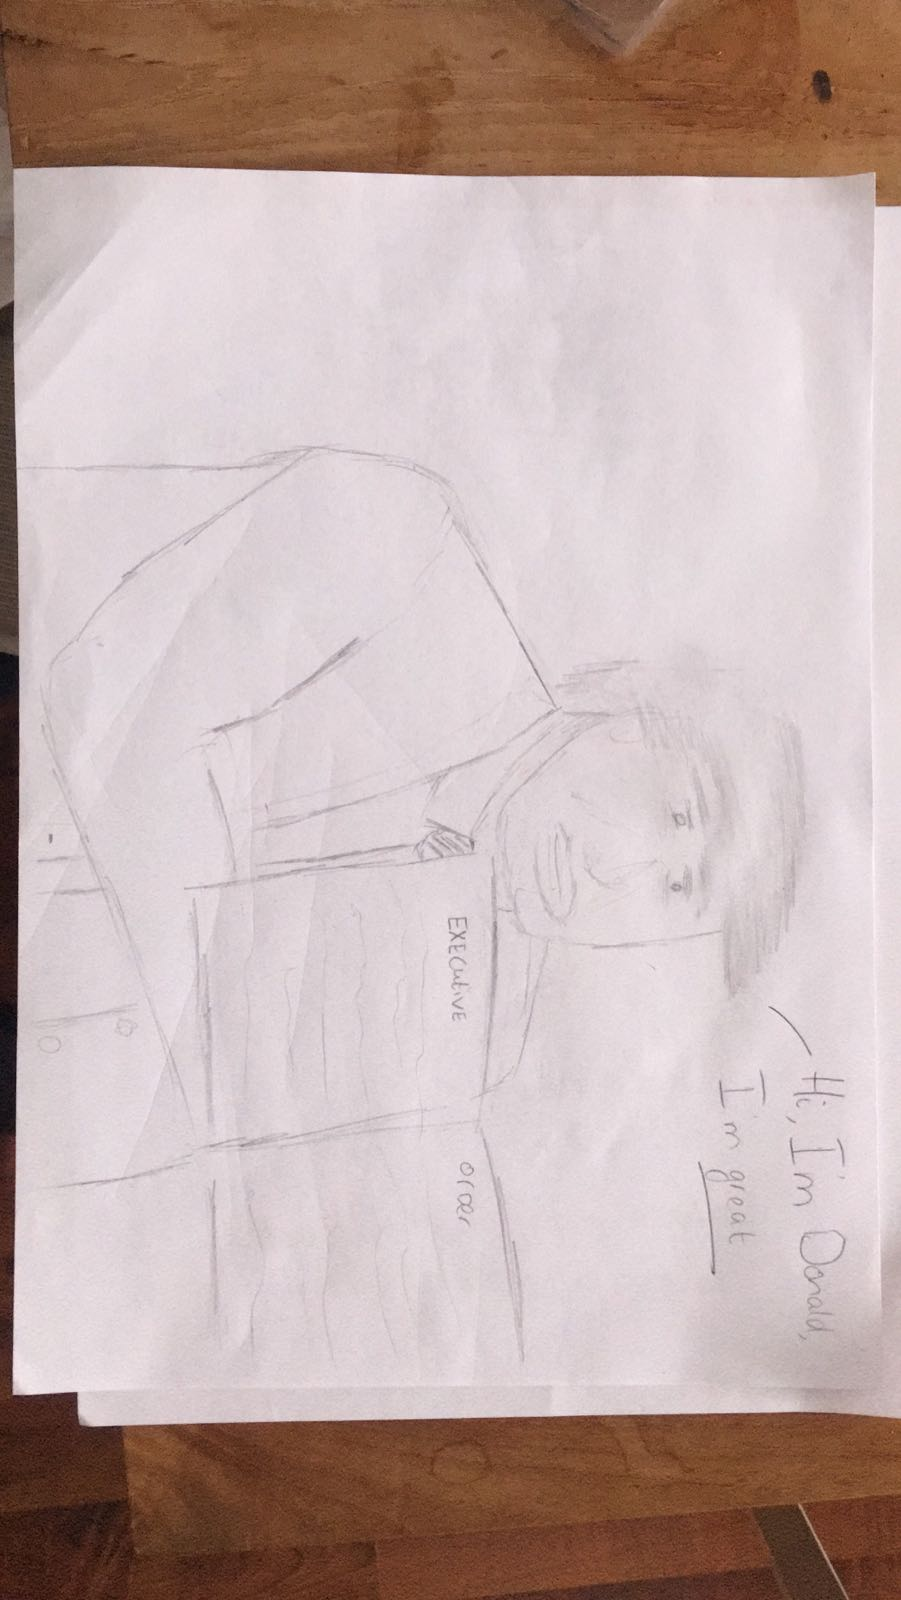 Hi, I'm Donald,
I'm great
EXECUTIVE ORDER